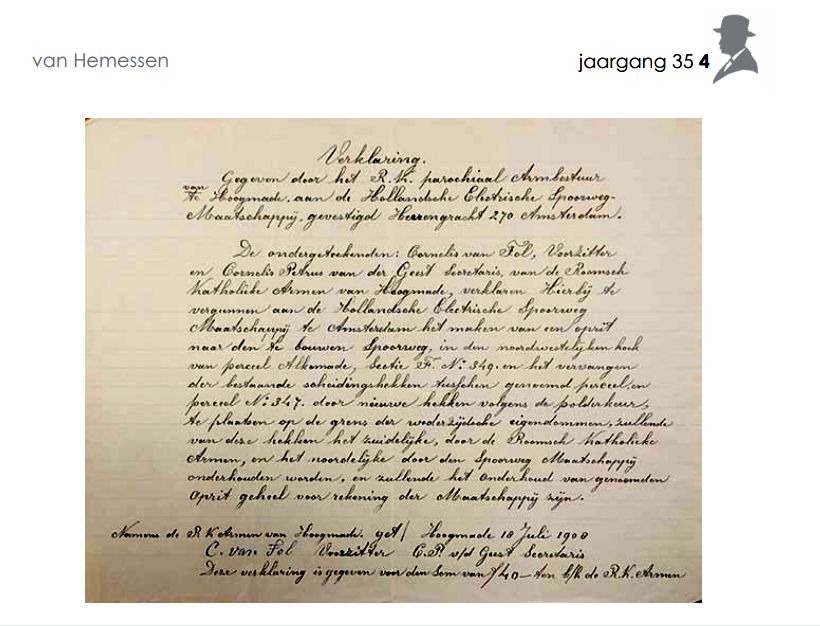 van Hemessen
jaargang 35 4
Verklaring.
Gegeven door het R.K. parochiaal Armbestuur
van
te Hoogmade. aan de Hollandsche Electrische Spoorweg-
Maatschappij. gevestigd Heerengracht 270 Amsterdam.
De ondergeteekenden: Cornelis van Tol, Voorzitter
en Cornelis Petrus van der Geest Secretaris, van de Roomsch
Katholieke Armen van Hoogmade, verklaren Hierbij te
vergunnen aan de Hollandsche Electrische Spoorweg
Maatschappij te Amsterdam het maken van een oprit
naar den te bouwen Spoorweg, in den noordwestelijken hoek
van perceel Alkemade, Sectie F. No. 349. en het vervangen
der bestaande scheidingshekken tusschen genoemd perceel en
perceel No. 347. door nieuwe hekken volgens de polderkeur,
te plaatsen op de grens der wederzijdsche eigendommen, zullende
van deze hekken het zuidelijke, door de Roomsch Katholieke
Armen, en het noordelijke door den Spoorweg Maatschappij
onderhouden worden, en zullende het onderhoud van genoemden
oprit geheel voor rekening der Maatschappij zijn.
Namens de R K Armen van Hoogmade. get/ Hoogmade 18 Juli 1908
C. van Tol Voorzitter C.P. v/d Geest Secretaris
Deze verklaring is gegeven voor den Som van ƒ40 — ten b/h de R.K. Armen